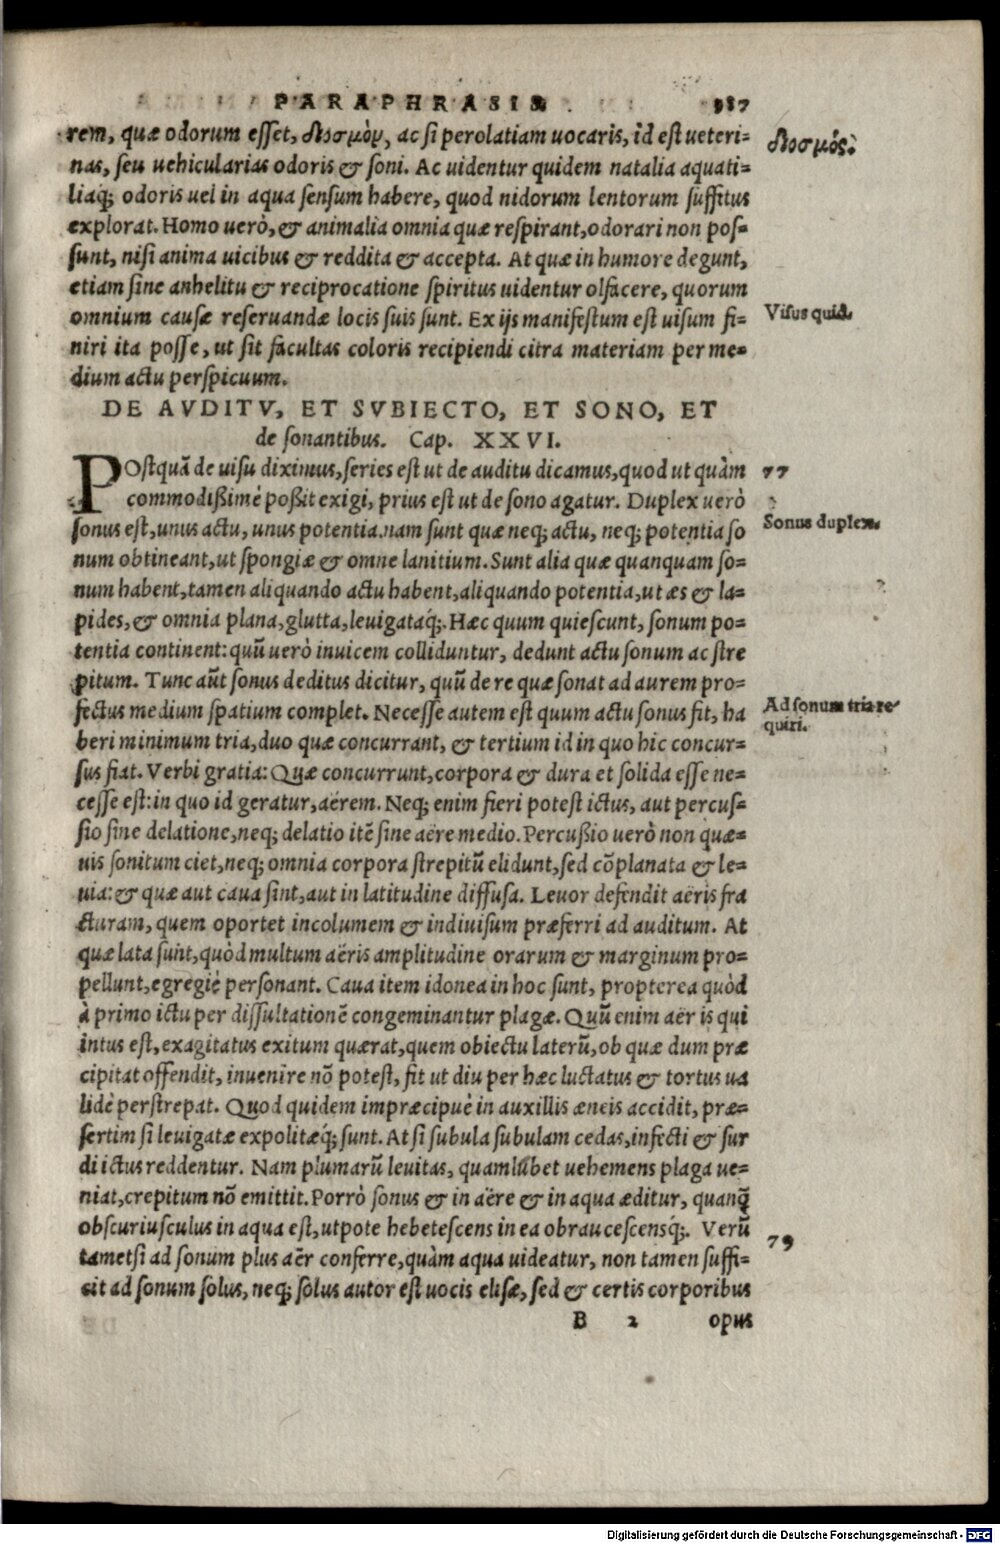 PARAPHRASIS 987
rem, quæ odorum esset, δίοσμον, ac si perolatiam uocaris, id est ueteri=
δίοσμος.
nas, seu uehicularias odoris & soni. Ac uidentur quidem natalia aquati=
liaq́; odoris uel in aqua sensum habere, quod nidorum lentorum suffitus
explorat. Homo uerò, & animalia omnia quæ respirant, odorari non pos=
sunt, nisi anima uicibus & reddita & accepta. At quæ in humore degunt,
etiam sine anhelitu & reciprocatione spiritus uidentur olfacere, quorum
omnium causæ reseruandæ locis suis sunt. Ex ijs manifestum est uisum fi=
Visus quid.
niri ita posse, ut sit facultas coloris recipiendi citra materiam per me=
dium actu perspicuum.
DE AVDITV, ET SVBIECTO, ET SONO, ET
de sonantibus. Cap. XXVI.
POstquã de uisu diximus, series est ut de auditu dicamus, quod ut quàm
77
commodißimè poßit exigi, prius est ut de sono agatur. Duplex uerò
Sonus duplex.
sonus est, unus actu, unus potentia. nam sunt quæ neq; actu, neq; potentia so
num obtineant, ut spongiæ & omne lanitium. Sunt alia quæ quanquam so=
num habent, tamen aliquando actu habent, aliquando potentia, ut æs & la=
pides, & omnia plana, glutta, leuigataq́;. Hæc quum quiescunt, sonum po=
tentia continent: quũ uerò inuicem colliduntur, dedunt actu sonum ac stre
pitum. Tunc aũt sonus deditus dicitur, quũ de re quæ sonat ad aurem pro=
fectus medium spatium complet. Necesse autem est quum actu sonus fit, ha
Ad sonum tria re
quiri.
beri minimum tria, duo quæ concurrant, & tertium id in quo hic concur=
sus fiat. Verbi gratia: Quæ concurrunt, corpora & dura et solida esse ne=
cesse est: in quo id geratur, aërem. Neq; enim fieri potest ictus, aut percus=
sio sine delatione, neq; delatio itẽ sine aëre medio. Percußio uerò non quæ=
uis sonitum ciet, neq; omnia corpora strepitũ elidunt, sed cõplanata & le=
uia: & quæ aut caua sint, aut in latitudine diffusa. Leuor defendit aëris fra
cturam, quem oportet incolumem & indiuisum præferri ad auditum. At
quæ lata sunt, quòd multum aëris amplitudine orarum & marginum pro=
pellunt, egregiè personant. Caua item idonea in hoc sunt, propterea quòd
à primo ictu per dissultationẽ congeminantur plagæ. Quũ enim aër is qui
intus est, exagitatus exitum quærat, quem obiectu laterũ, ob quæ dum præ
cipitat offendit, inuenire nõ potest, fit ut diu per hæc luctatus & tortus ua
lidè perstrepat. Quod quidem impræcipuè in auxillis æneis accidit, præ=
sertim si leuigatæ expolitæq́; sunt. At si subula subulam cedas, infecti & sur
di ictus reddentur. Nam plumarũ leuitas, quamlibet uehemens plaga ue=
niat, crepitum nõ emittit. Porrò sonus & in aëre & in aqua æditur, quanq̃
obscuriusculus in aqua est, utpote hebetescens in ea obraucescensq́;. Verũ
79
tametsi ad sonum plus aër conferre, quàm aqua uideatur, non tamen suffi=
cit ad sonum solus, neq; solus autor est uocis elisæ, sed & certis corporibus
B 2 opus
Digitalisierung gefördert durch die Deutsche Forschungsgemeinschaft - DFG